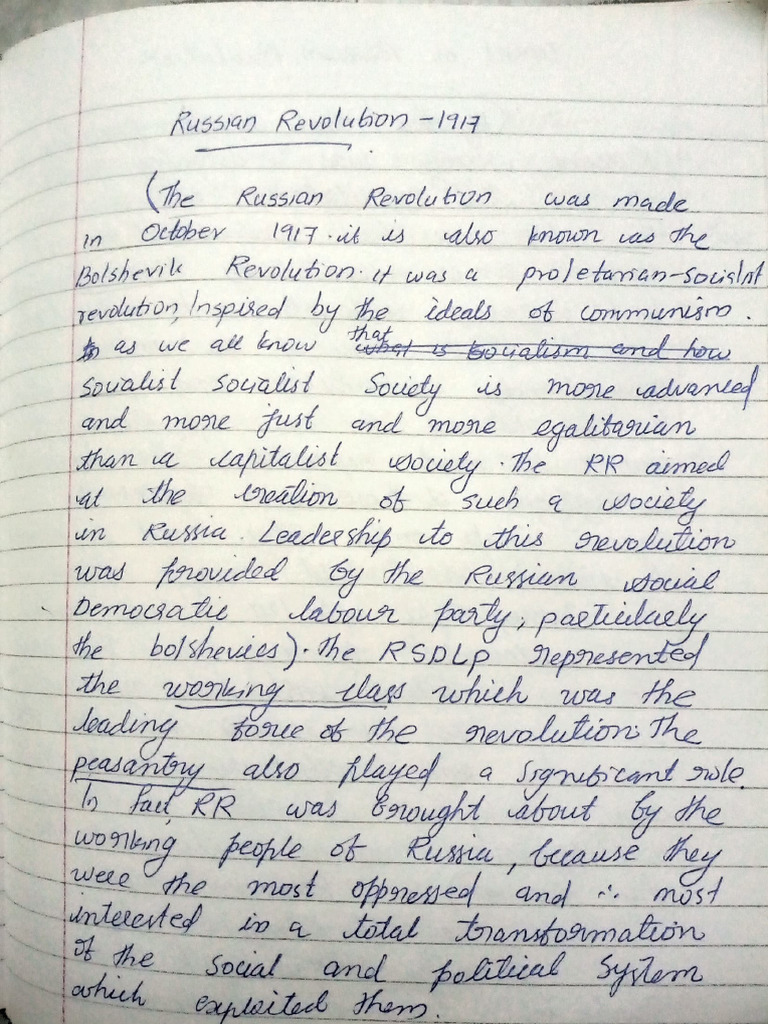 Russian Revolution - 1917
(The Russian Revolution was made
in October 1917. it is also known as the
Bolshevik Revolution. it was a proletarian-socialist
revolution, Inspired by the ideals of communism.
as we all know that what is socialism and how
socialist socialist Society is more advanced
and more just and more egalitarian
than a capitalist society. The RR aimed
at the creation of such a society
in Russia. Leadership to this revolution
was provided by the Russian social
Democratic labour party, particularly
the bolshevics). The RSDLP represented
the working class which was the
leading force of the revolution. The
peasantry also played a significant role.
In fact, RR was brought about by the
working people of Russia, because they
were the most oppressed and ∴ most
interested in a total transformation
of the social and political System
which exploited them.